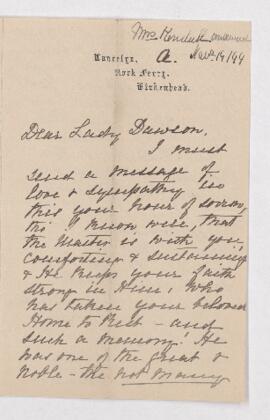 Mrs. Kendall answered
a. Nov. 19/99
Rock Ferry.
Birkenhead.
Dear Lady Dawson,
I must
send a message of
love & sympathy in
this your hour of sorrow,
tho' I know well, that
the Master is with you,
comforting & sustaining
& He keeps your faith
strong in Him, Who
has taken your beloved
Home to Rest - and
such a memory! He
was one of the great &
noble - the not many